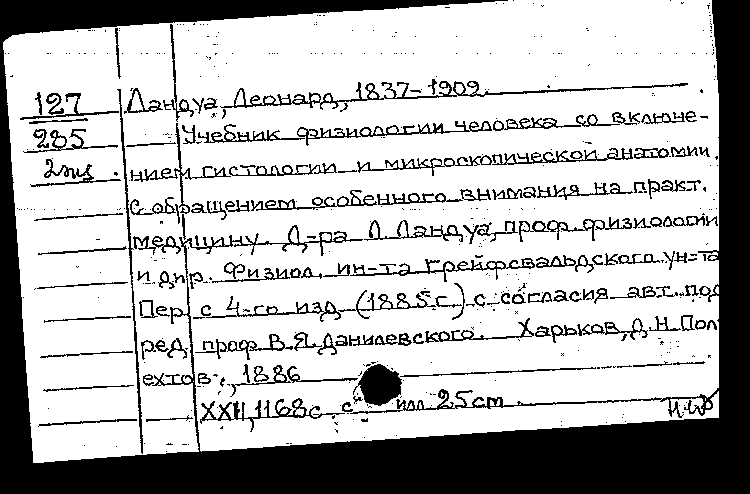 127 Ландуа, Леонард, 1837-1909.
285 Учебник физиологии человека со включе-
2 экз. нием гистологии и микроскопической анатомии,
с обращением особенного внимания на практ.
медицину. Д-ра Л. Ландуа, проф. физиологии
и дир. Физиол. ин-та Грейфсвальдского ун-та
Пер. с 4-го изд. (1885 г.) с согласия авт. под
ред. проф. В.Я. Данилевского. Харьков, Д.Н. Пол
ехтов, 1886
XXII, 1168 с. с илл 25 cm.